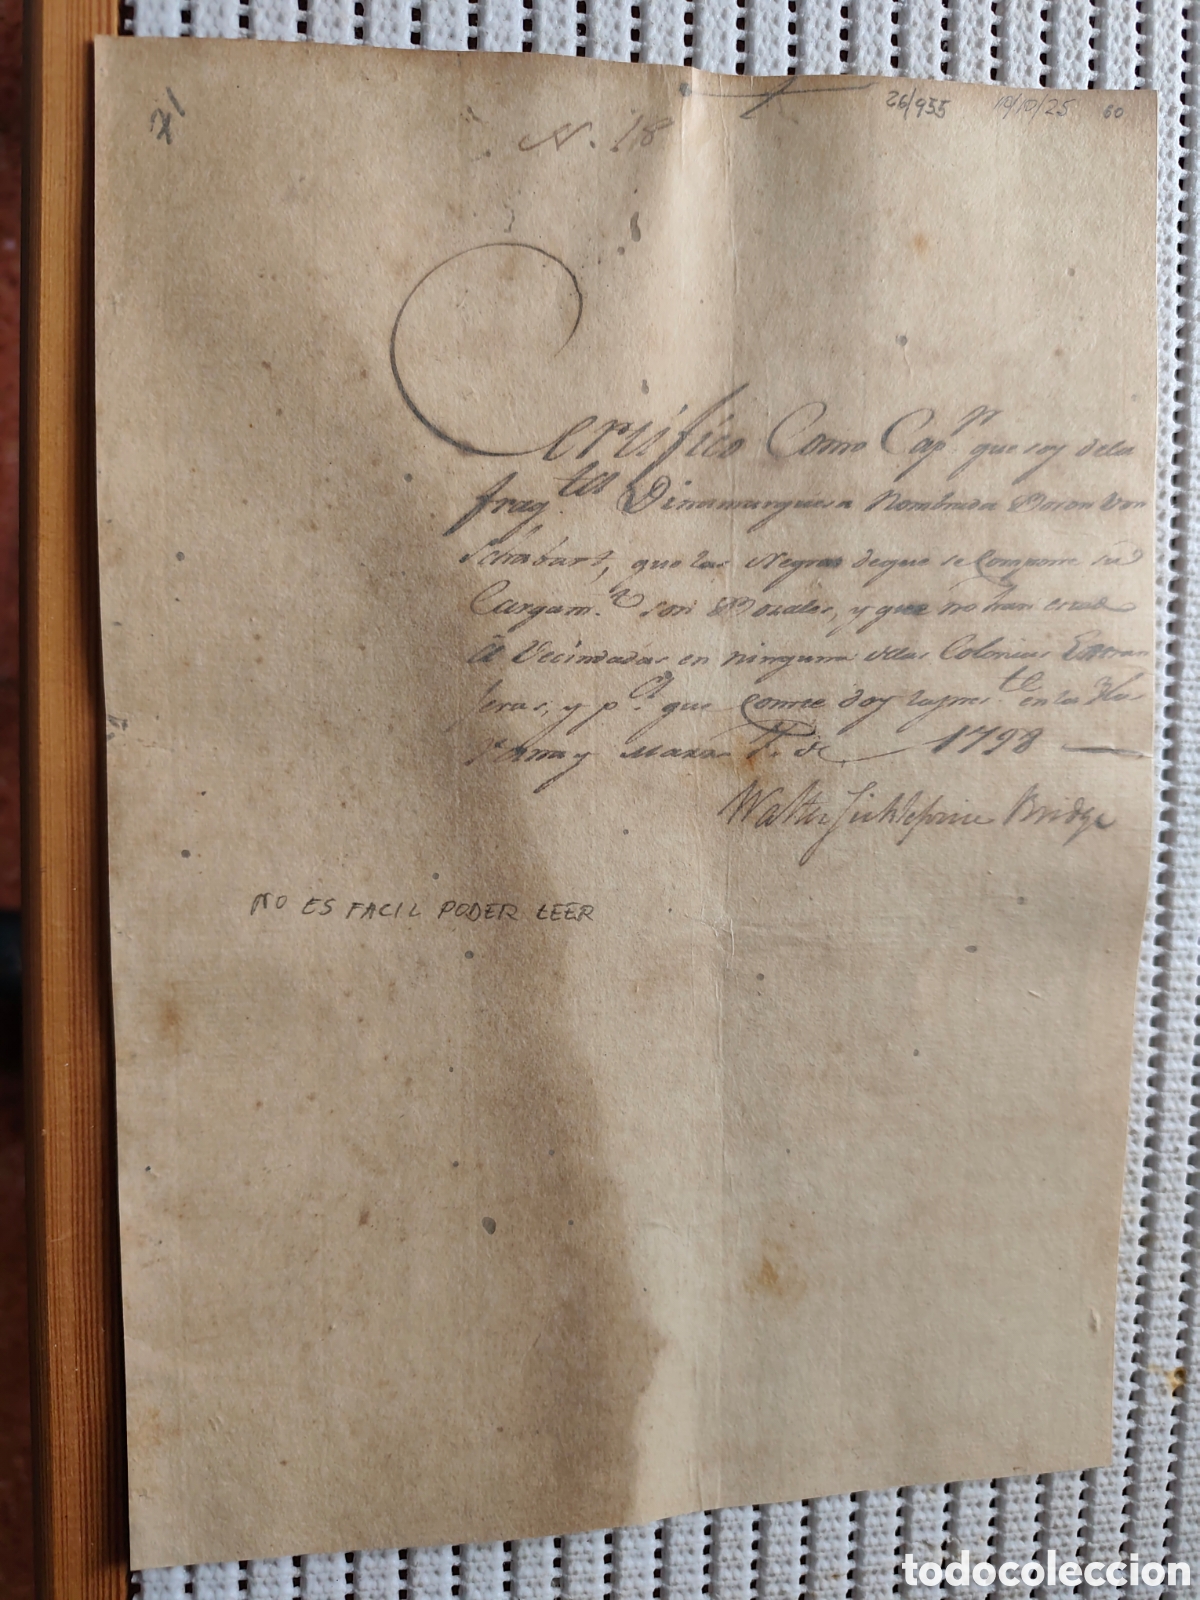 71
N. 18
26/955 19/10/25 60
Certifico Como Cap.n que soy dela
frag.ta Dinamarquesa Nombrada Baron Von
que los Negros deque se Compone su
Cargam.to son Bosales, y que no han estad
Vecindadas en ninguna delas Colonias Extran
jeras, y p.a que Conste doy la pres.te en la Ha
vana y Marzo de 1798
Walter Bridge
NO ES FACIL PODER LEER
todocoleccion